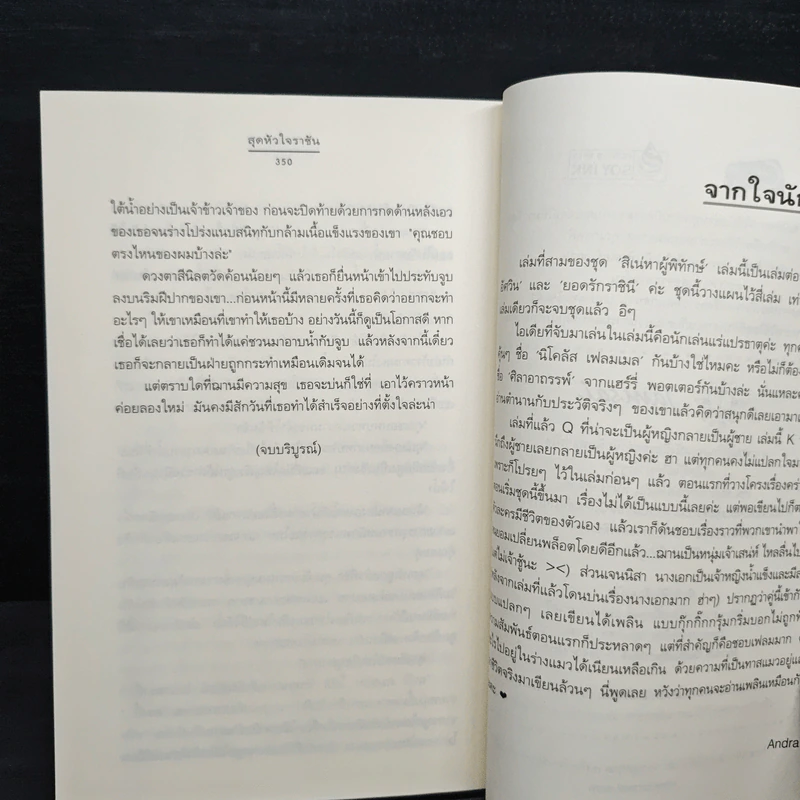 สุดหัวใจราชัน
350
ใต้น้ำอย่างเป็นเจ้าข้าวเจ้าของ ก่อนจะปิดท้ายด้วยการกดด้านหลังเอว
ของเธอจนร่างโปร่งแนบสนิทกับกล้ามเนื้อแข็งแรงของเขา "คุณชอบ
ตรงไหนของผมบ้างล่ะ"
ดวงตาสีนิลตวัดค้อนน้อยๆ แล้วเธอก็ยื่นหน้าเข้าไปประทับจูบ
ลงบนริมฝีปากของเขา...ก่อนหน้านี้มีหลายครั้งที่เธอคิดว่าอยากจะทำ
อะไรๆ ให้เขาเหมือนที่เขาทำให้เธอบ้าง อย่างวันนี้ก็ดูเป็นโอกาสดี หาก
เชื่อได้เลยว่าเธอก็ทำได้แค่ชวนมาอาบน้ำกับจูบ แล้วหลังจากนี้เดี๋ยว
เธอก็จะกลายเป็นฝ่ายถูกกระทำเหมือนเดิมจนได้
แต่ตราบใดที่ฌานมีความสุข เธอจะบ่นก็ใช่ที่ เอาไว้คราวหน้า
ค่อยลองใหม่ มันคงมีสักวันที่เธอทำได้สำเร็จอย่างที่ตั้งใจล่ะน่า
(จบบริบูรณ์)
จากใจนัก
เล่มที่สามของชุด 'สิเน่หาผู้พิทักษ์' เล่มนี้เป็นเล่มต่อ
อัศวิน' และ 'ยอดรักราชินี' ค่ะ ชุดนี้วางแผนไว้สี่เล่ม เท่
เล่มเดียวก็จะจบชุดแล้ว อิๆ
ไอเดียที่จับมาเล่นในเล่มนี้คือนักเล่นแร่แปรธาตุค่ะ ทุกค
คุ้นๆ ชื่อ 'นิโคลัส เฟลมเมล' กันบ้างใช่ไหมคะ หรือไม่ก็ต้อง
ชื่อ 'ศิลาอาถรรพ์' จากแฮร์รี่ พอตเตอร์กันบ้างล่ะ นั่นแหละค
อ่านตำนานกับประวัติจริงๆ ของเขาแล้วคิดว่าสนุกดีเลยเอามา
เล่มที่แล้ว Q ที่น่าจะเป็นผู้หญิงกลายเป็นผู้ชาย เล่มนี้ K
ถึงผู้ชายเลยกลายเป็นผู้หญิงค่ะ ฮา แต่ทุกคนคงไม่แปลกใจม
เพราะก็โปรยๆ ไว้ในเล่มก่อนๆ แล้ว ตอนแรกที่วางโครงเรื่องคร่
ตอนเริ่มชุดนี้ขึ้นมา เรื่องไม่ได้เป็นแบบนี้เลยค่ะ แต่พอเขียนไปก็ต
ตัวละครมีชีวิตของตัวเอง แล้วเราก็ดันชอบเรื่องราวที่พวกเขานำพา
ยอมเปลี่ยนพล็อตโดยดีอีกแล้ว...ฌานเป็นหนุ่มเจ้าเสน่ห์ ไหลลื่นไป
ไม่เจ้าชู้นะ ><) ส่วนเจนนิสา นางเอกเป็นเจ้าหญิงน้ำแข็งและมีส
หลังจากเล่มที่แล้วโดนบ่นเรื่องนางเอกมาก ฮ่าๆ) ปรากฏว่าคู่นี้เข้ากั
แปลกๆ เลยเขียนได้เพลิน แบบกุ๊กกิ๊กกรุ้มกริ่มบอกไม่ถูกพ
ความสัมพันธ์ตอนแรกก็ประหลาดๆ แต่ที่สำคัญก็คือชอบเฟลมมาก
ไปอยู่ในร่างแมวได้เนียนเหลือเกิน ด้วยความที่เป็นทาสแมวอยู่แล
ชีวิตจริงมาเขียนล้วนๆ นี่พูดเลย หวังว่าทุกคนจะอ่านเพลินเหมือนกั
ค่ะ ♥
Andra